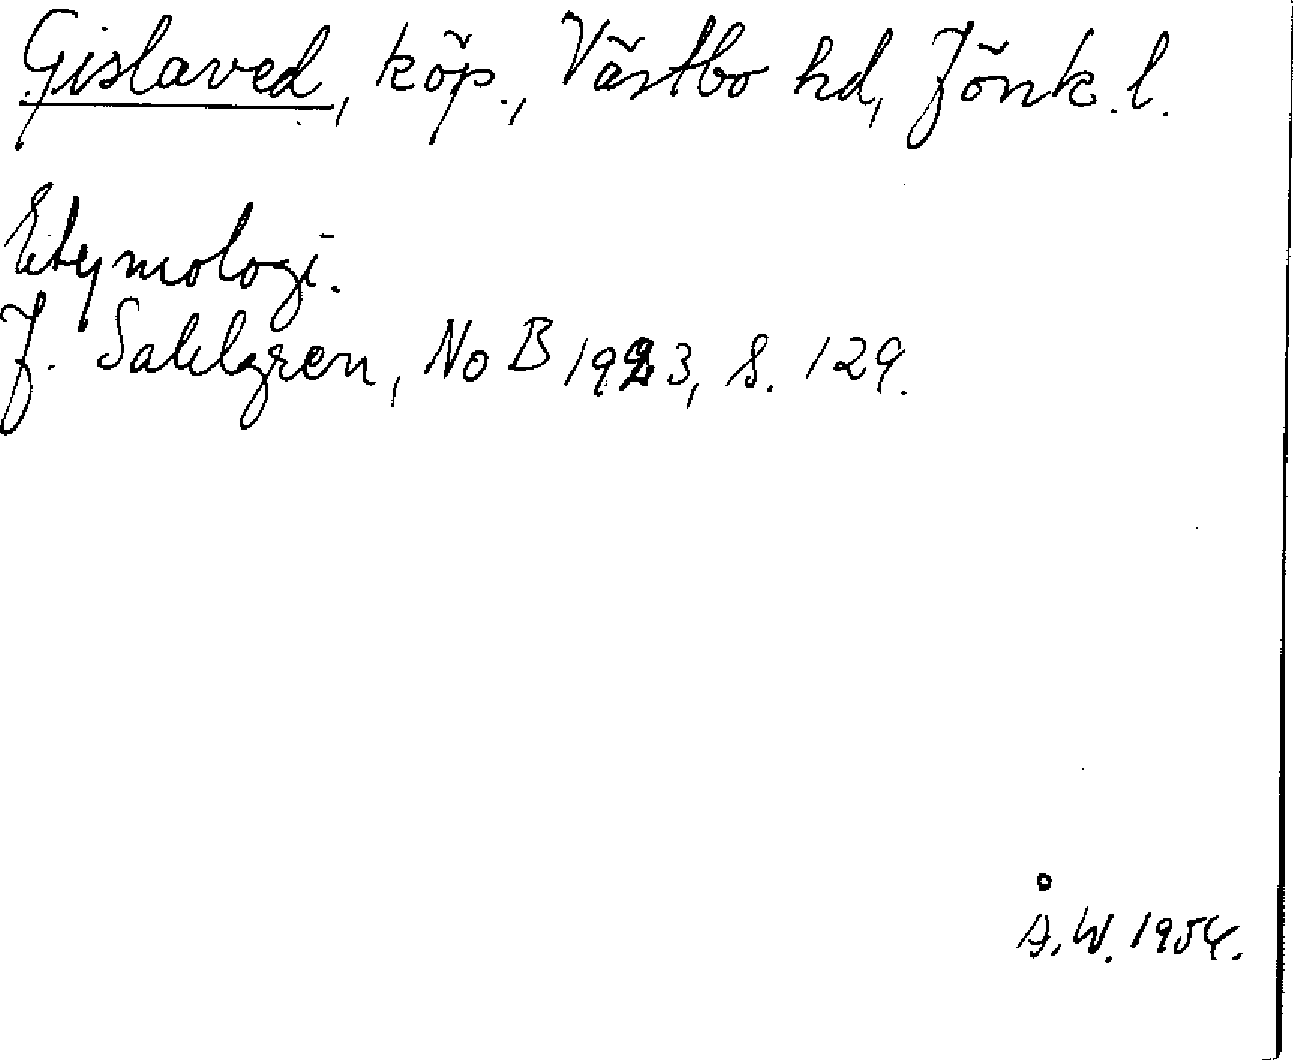 Gislaved, köp., Västbo hd, Jönk. l.
Etymologi.
J. Sahlgren, NoB 1923, s. 129.
Å. W. 1954.